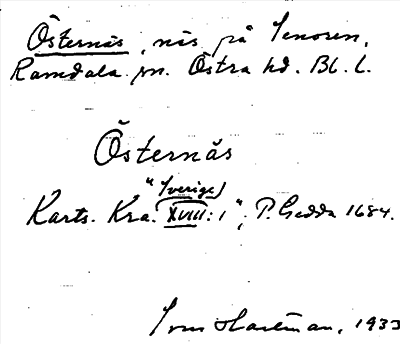 Östernäs, näs på Senoren,
Ramdala sn. Östra hd. Bl. L.
Östernäs
"Sverige
Karts. Kra. XVIII: 1", P. Gedda 1684.
1933